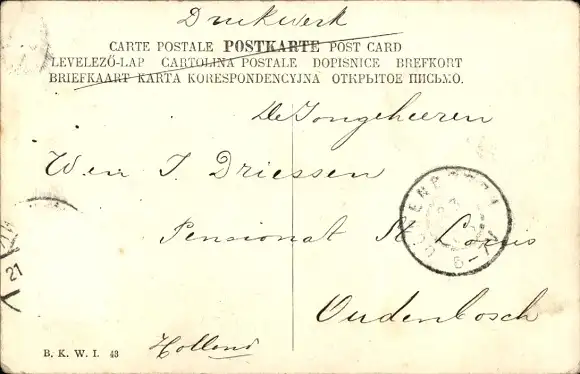 Drukwerk
CARTE POSTALE POSTKARTE POST CARD
LEVELEZŐ-LAP CARTOLINA POSTALE DOPISNICE BREFKORT
BRIEFKAART KARTA KORESPONDENCYJNA ОТКРЫТОЕ ПИСЬМО.
De Jongeheeren
W. en J. Driessen
Pensionat St Louis
Oudenbosch
Holland
B. K. W. I. 43
21